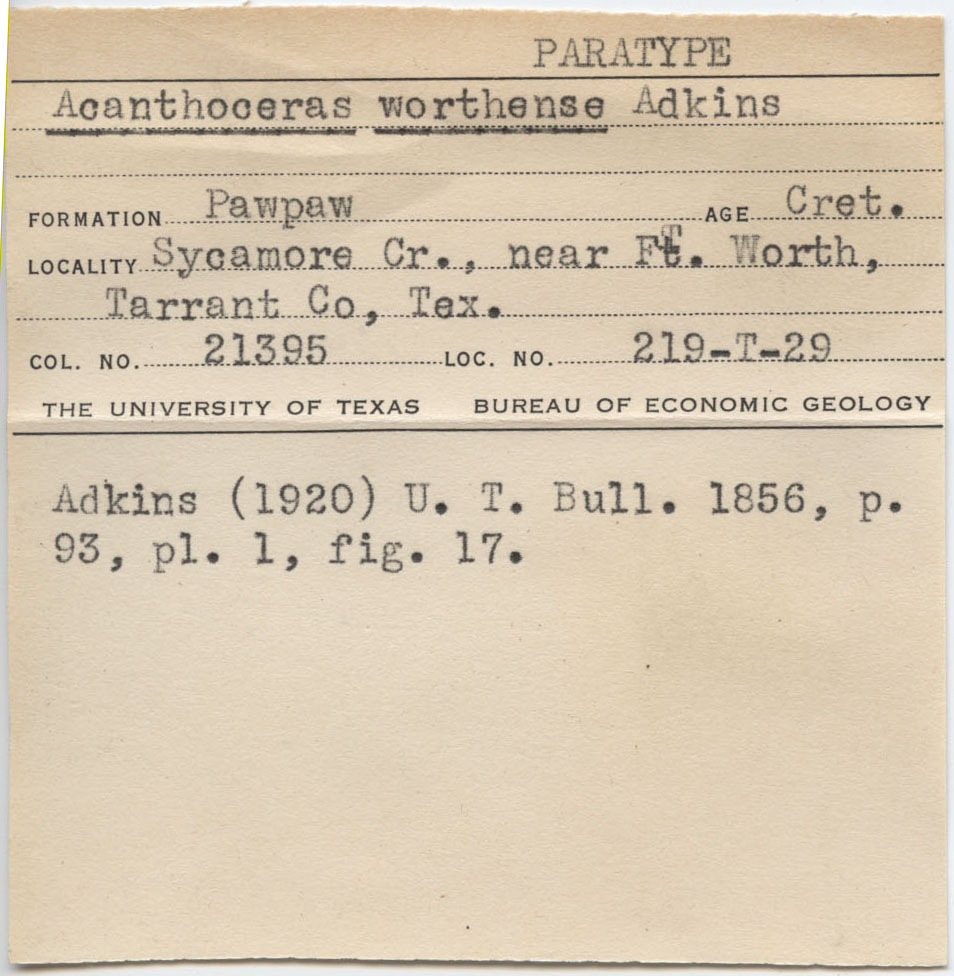 PARATYPE
Acanthoceras worthense Adkins
FORMATION Pawpaw AGE Cret.
LOCALITY Sycamore Cr., near Ft. Worth,
Tarrant Co, Tex.
COL. NO. 21395 LOC. NO. 219-T-29
THE UNIVERSITY OF TEXAS BUREAU OF ECONOMIC GEOLOGY
Adkins (1920) U. T. Bull. 1856, p.
93, pl. 1, fig. 17.